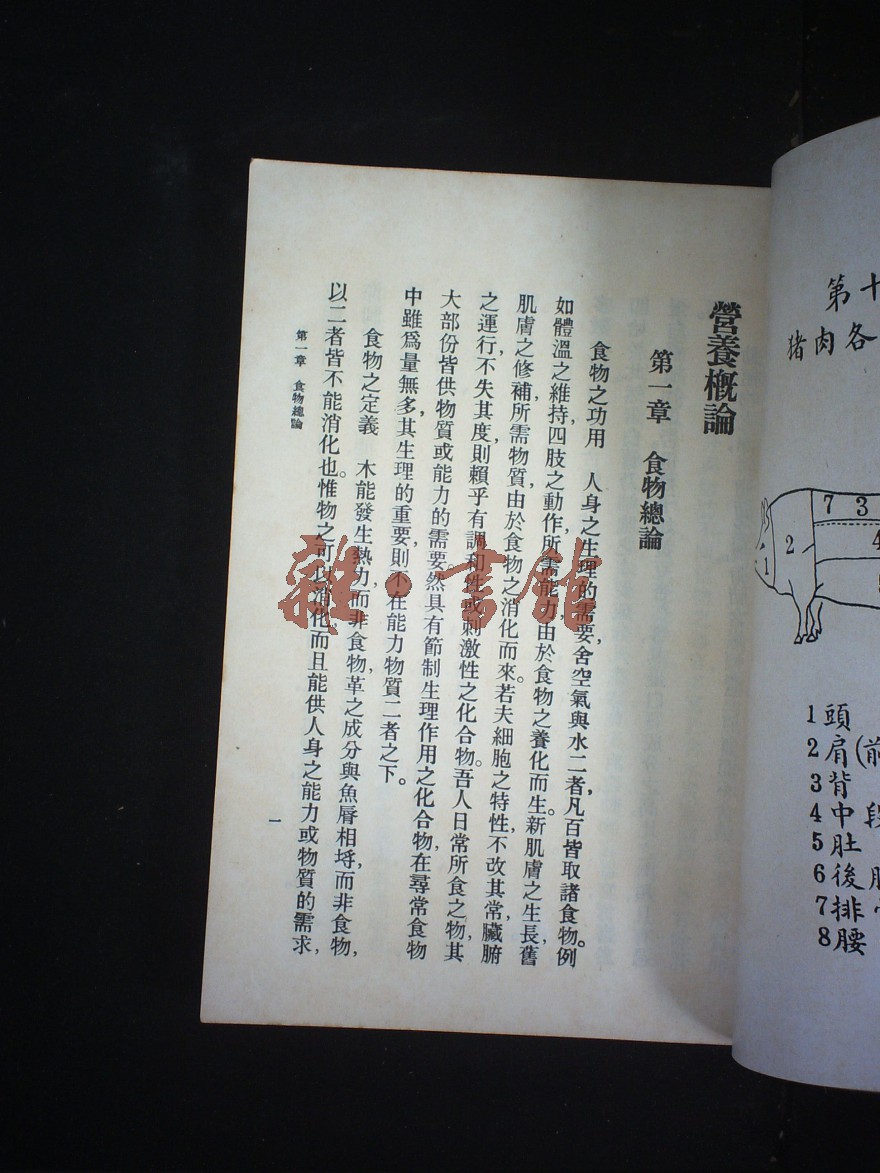 營養概論
第一章　食物總論
食物之功用　人身之生理的需要，舍空氣與水二者，凡百皆取諸食物。例
如體溫之維持，四肢之動作，所需能力，由於食物之養化而生。新肌膚之生長，舊
肌膚之修補，所需物質，由於食物之消化而來。若夫細胞之特性，不改其常，臟腑
之運行，不失其度，則賴乎有調和性或刺激性之化合物。吾人日常所食之物，其
大部份皆供物質或能力的需要，然具有節制生理作用之化合物，在尋常食物
中雖爲量無多，其生理的重要，則不在能力物質二者之下。
食物之定義　木能發生熱力，而非食物，革之成分與魚脣相埒，而非食物，
以二者皆不能消化也。惟物之可以消化而且能供人身之能力或物質的需求，
第一章　食物總論
一
第十
猪肉各
1 2 3 4 7
1頭
2肩(前
3背
4中段
5肚
6後
7排
8腰
雜·書館